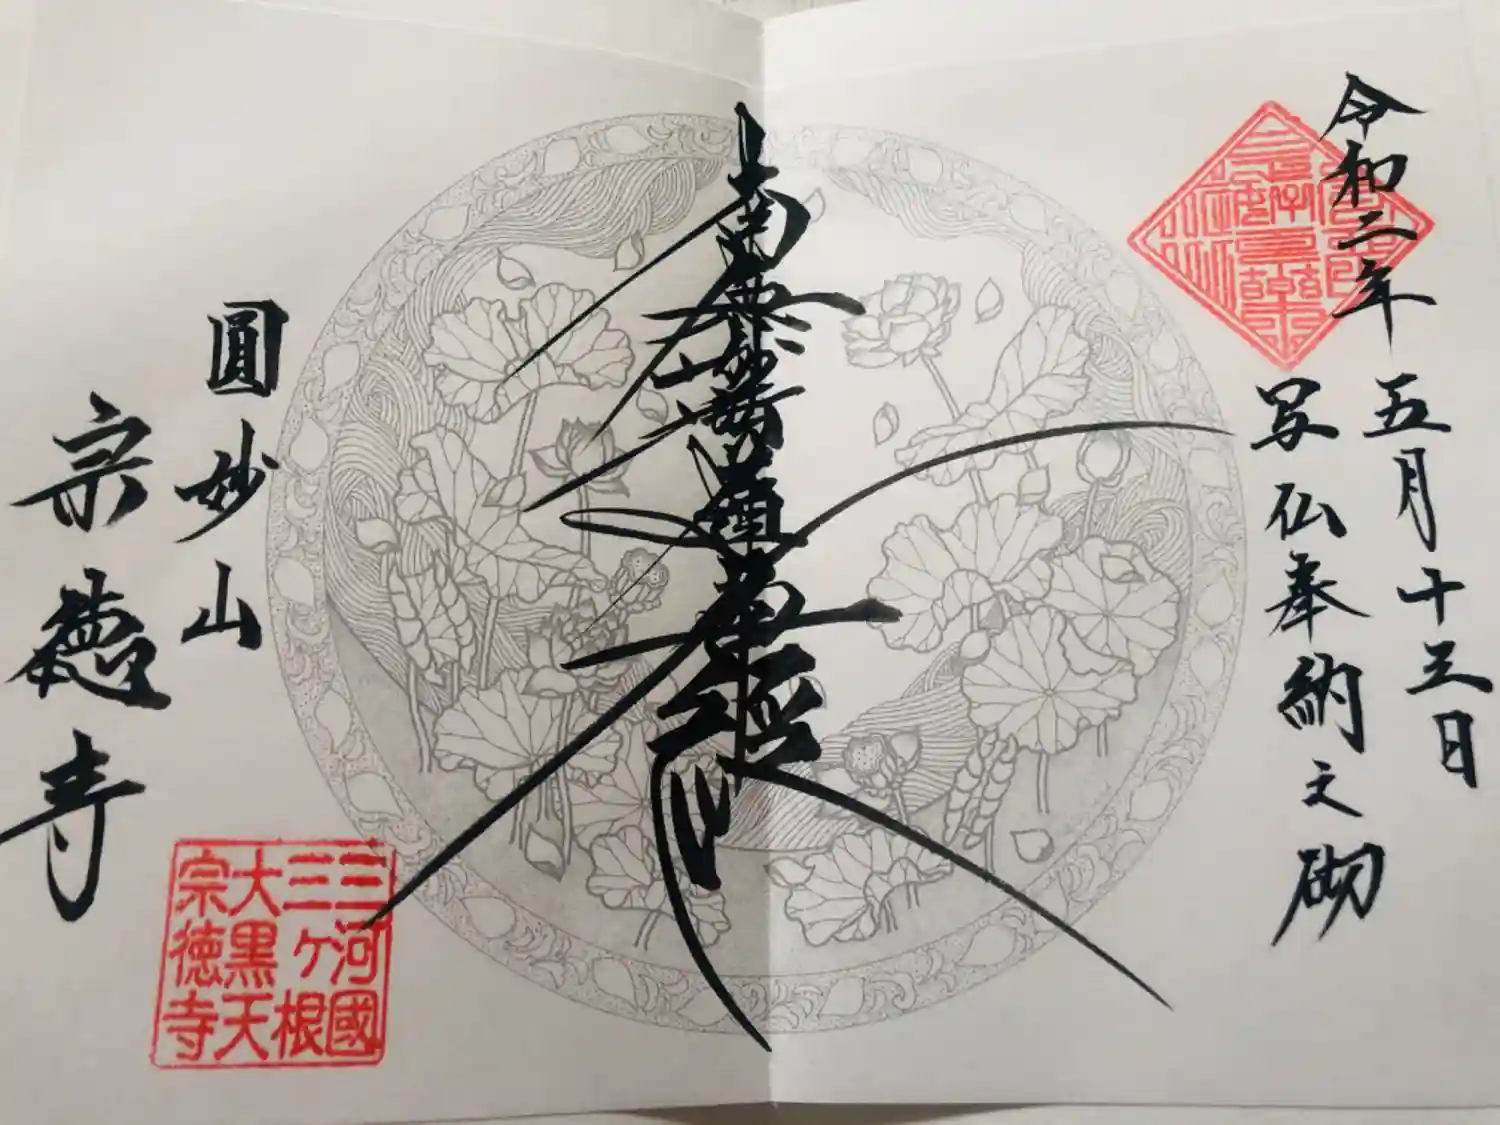 令和二年
五月十三日
写仏奉納之砌
南無妙法蓮華経
圓妙山
宗徳寺
三河國
三ヶ根
大黒天
宗徳寺